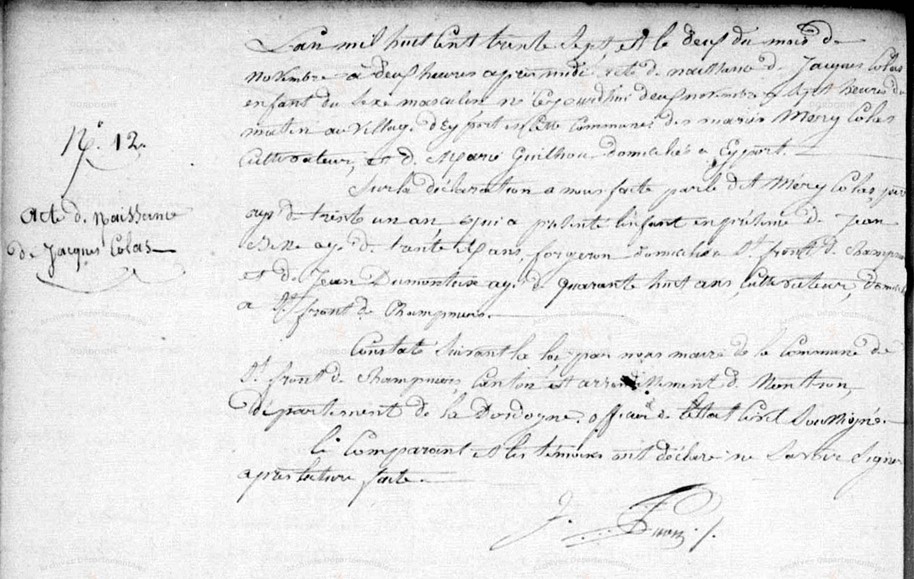 N.° 12.
Acte de Naissance
de Jacques Colas
L'an mil huit cent trente sept et le deux du mois de
novembre à deux heures après midi acte de naissance de Jacques Colas
enfant du sexe masculin né cejourdhui deux novembre à sept heures du
matin au village d'Eyport en cette commune des mariés Mery Colas
cultivateur, et de Marie Guilhou domiciliés a Eyport.
Sur la déclaration a nous faite par le dit Méry Colas, père
agé de trente un an qui a présenté l'enfant en présence de Jean
agé de trente ans, forgeron domicilié a St. front de Champniers
et de Jean Dumonteix agé de quarante huit ans cultivateur, domicilié
a St. front de Champniers.
Constaté suivant la loi par nous maire de la commune de
St. front de Champniers canton et arrondissement de Nontron,
département de la Dordogne. officier de l'état civil soussigné.
Le comparant et les témoins ont déclaré ne savoir signer
après lecture faite.